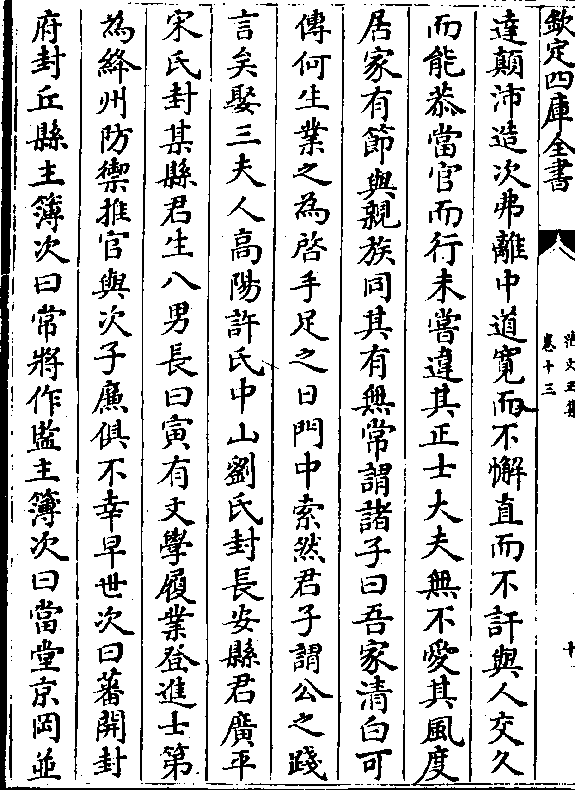 欽定四庫全書
卷十三
達顛沛造次弗離中道寛而不懈直而不訐與人交久
而能恭當官而行未嘗違其正士大夫無不愛其風度
居家有節與親族同其有無常謂諸子曰吾家清白可
傳何生業之為啓手足之日門中索然君子謂公之踐
言矣娶三夫人高陽許氏中山劉氏封長安縣君廣平
宋氏封某縣君生八男長曰寅有文學履業登進士第
為絳州防禦推官與次子廉俱不幸早世次曰蕃開封
府封丘縣主簿次曰常將作監主簿次曰當堂京岡並